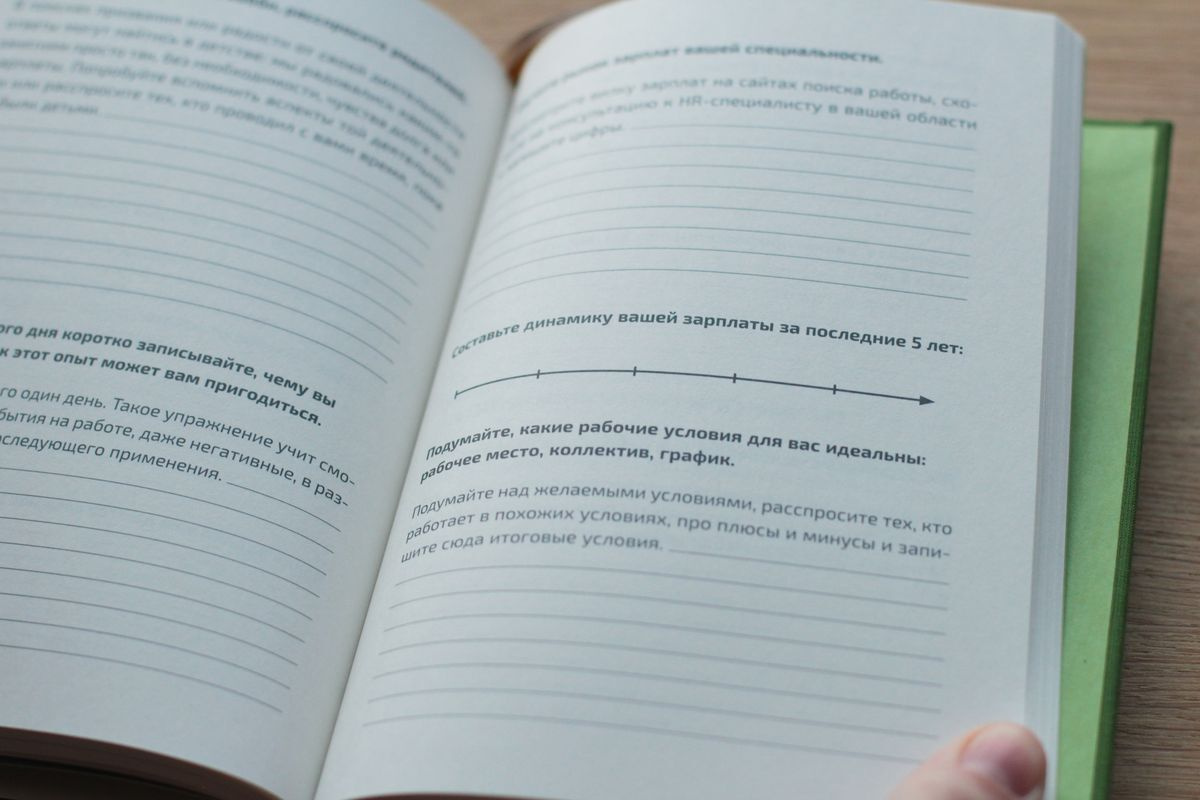 расспросите родителей.
В поисках призвания или радости от своей деятельности
ответы могут найтись в детстве: мы радовались каким-то
просто так, без необходимости, чувства долга или
зарплаты. Попробуйте вспомнить аспекты той деятельно-
или расспросите тех, кто проводил с вами время, пока
были детьми.
ого дня коротко записывайте, чему вы
к этот опыт может вам пригодиться.
го один день. Такое упражнение учит смо-
бытия на работе, даже негативные, в раз-
аследующего применения.
зарплат вашей специальности.
вилку зарплат на сайтах поиска работы, схо-
на консультацию к HR-специалисту в вашей области
цифры.
Составьте динамику вашей зарплаты за последние 5 лет:
Подумайте, какие рабочие условия для вас идеальны:
рабочее место, коллектив, график.
Подумайте над желаемыми условиями, расспросите тех, кто
работает в похожих условиях, про плюсы и минусы и запи-
шите сюда итоговые условия.